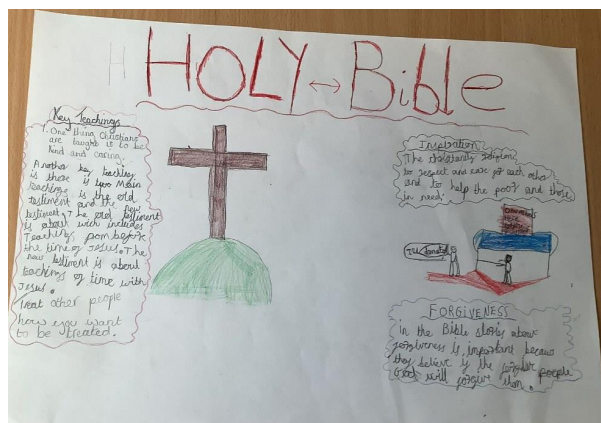 H
HOLY ↔ Bible
Key Teachings
1. One thing Christians
are taught is to be
kind and caring.
Another key teaching
is there is two Main
teachings is the old
testiment and the new
testiment. The old testiment
is about wich includes
Teachings from before
the time of Jesus. The
new testiment is about
teachings of time with
Jesus.
Treat other people
how you want
to be treated.
Inspiration
The Christianity religion
to respect and care for each other
and to help the poor and those
in need.
I'll donate
FORGIVENESS
in the Bible storys about
forgiveness is important because
they believe if the forgive people
God will forgive them.